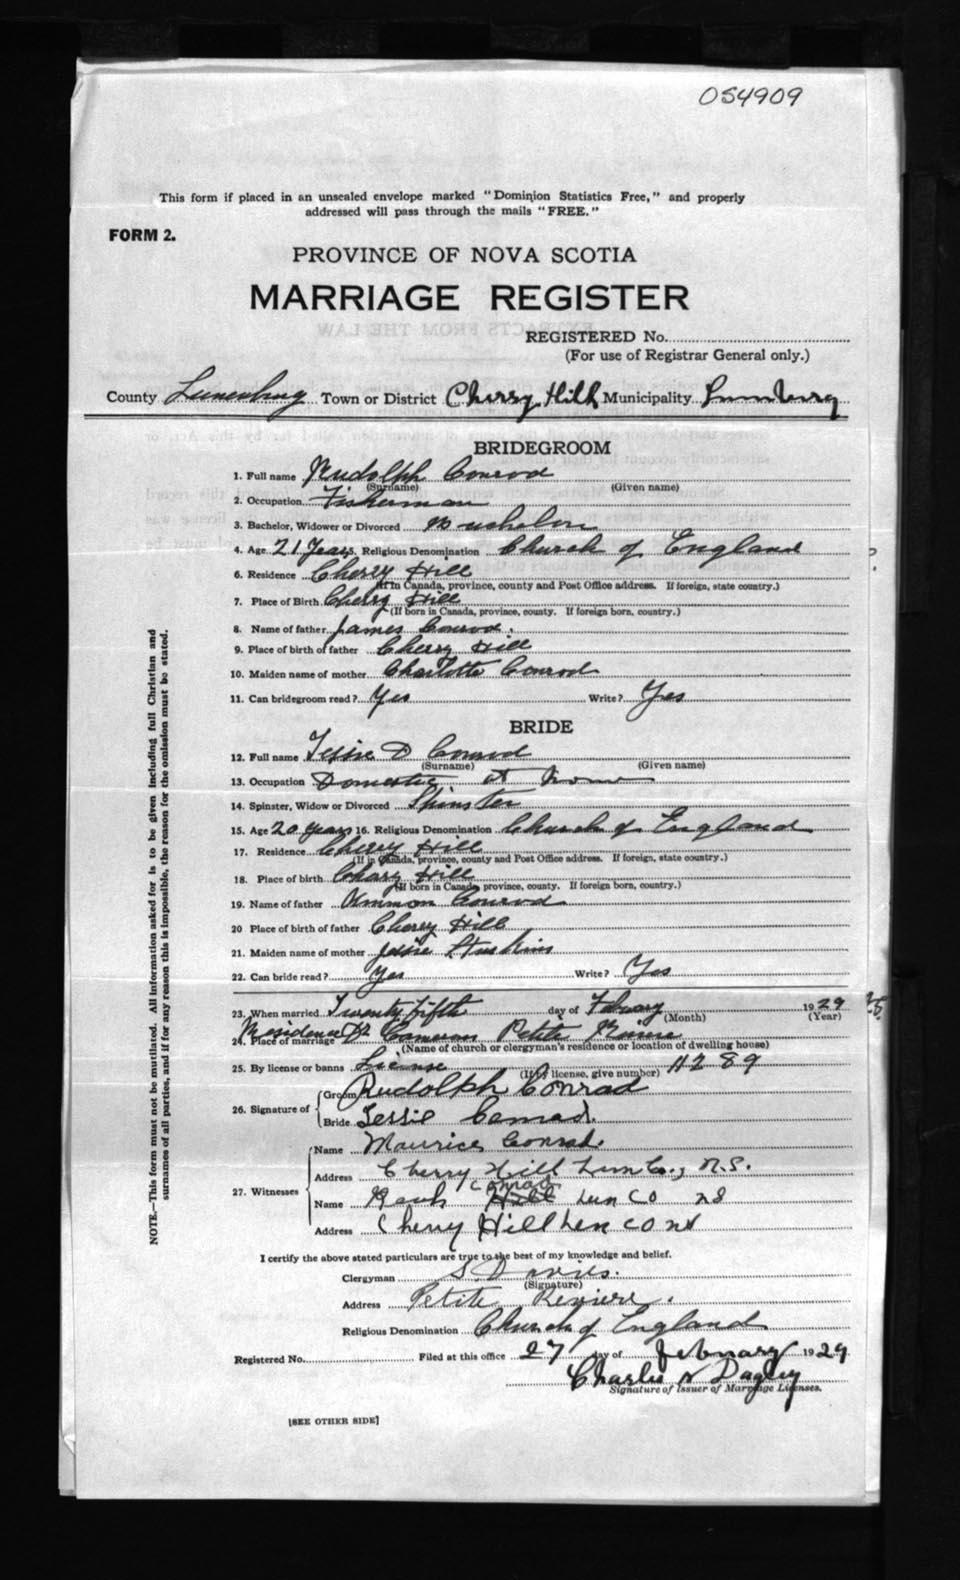 OS4909
This form if placed in an unsealed envelope marked "Dominion Statistics Free," and properly
addressed will pass through the mails "FREE."
FORM 2.
PROVINCE OF NOVA SCOTIA
MARRIAGE REGISTER
REGISTERED No.
(For use of Registrar General only.)
County Lunenburg Town or District Cherry Hill Municipality Lunenburg
BRIDEGROOM
1. Full name Rudolph Conrod
(Surname) (Given name)
2. Occupation Fisherman
3. Bachelor, Widower or Divorced Bachelor
4. Age 21 Years 5. Religious Denomination Church of England
6. Residence Cherry Hill
(If in Canada, province, county and Post Office address. If foreign, state country.)
7. Place of Birth Cherry Hill
(If born in Canada, province, county. If foreign born, country.)
8. Name of father James Conrod.
9. Place of birth of father Cherry Hill
10. Maiden name of mother Charlotte Conrod
11. Can bridegroom read? Yes Write? Yes
BRIDE
12. Full name Tessie D Conrod
(Surname) (Given name)
13. Occupation Domestic at home
14. Spinster, Widow or Divorced Spinster
15. Age 20 years 16. Religious Denomination Church of England
17. Residence Cherry Hill
(If in Canada, province, county and Post Office address. If foreign, state country.)
18. Place of birth Chary Hill
(If born in Canada, province, county. If foreign born, country.)
19. Name of father Conrod
20 Place of birth of father Cherry Hill
21. Maiden name of mother Jessie
22. Can bride read? Yes Write? Yes
23. When married Twenty fifth day of Febuary 1929
(Month) (Year)
24. Place of marriage Residence Cameron Petite Riviere
(Name of church or clergyman's residence or location of dwelling house)
25. By license or banns License 11289
(If by license, give number)
26. Signature of Groom Rudolph Conrad
Bride Tessie Conrad.
27. Witnesses
Name Maurice Conrad.
Address Cherry Hill Lun Co., N.S.
Conrad
Name Hill Lun CO NS
Address Cherry Hill Lun CO NS
I certify the above stated particulars are true to the best of my knowledge and belief.
Clergyman S. Davies.
(Signature)
Address Petite Reviere.
Religious Denomination Church of England
Registered No. Filed at this office 27 day of February 1929
Charles N Dagley
Signature of Issuer of Marriage Licenses.
[SEE OTHER SIDE]
NOTE.—This form must not be mutilated. All information asked for is to be given including full Christian and
surnames of all parties, and if for any reason this is impossible, the reason for the omission must be stated.